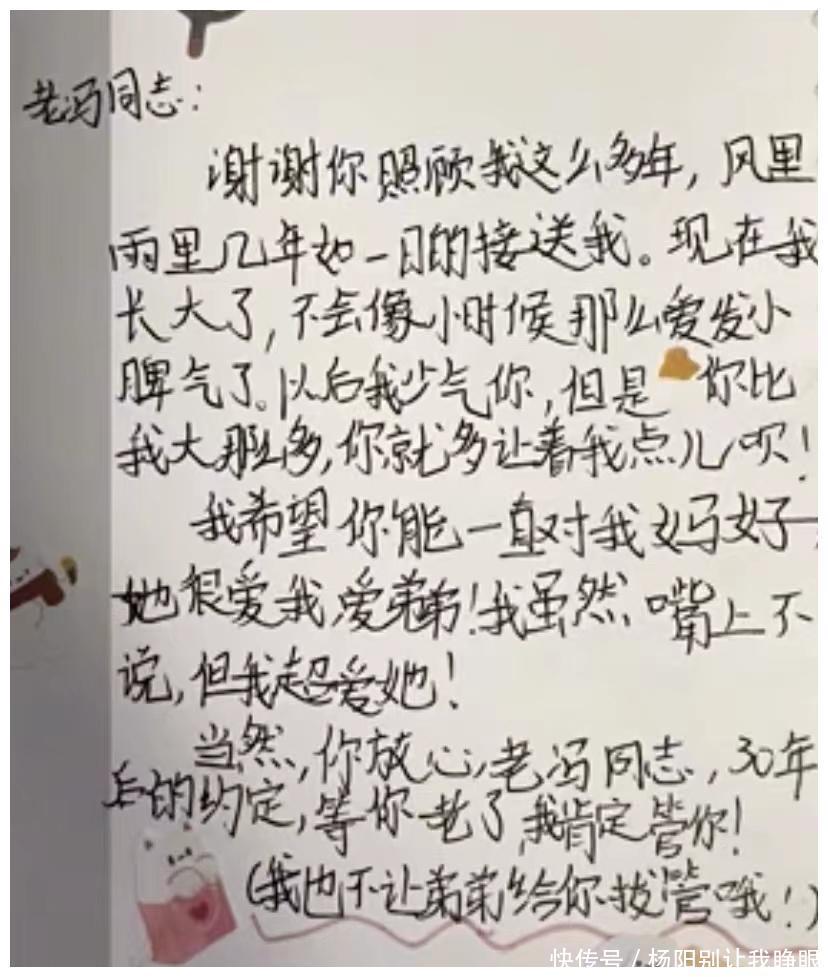 老冯同志：
谢谢你照顾我这么多年，风里
雨里几年如一日的接送我。现在我
长大了，不会像小时候那么爱发小
脾气了。以后我少气你，但是你比
我大那么多，你就多让着我点儿呗！
我希望你能一直对我妈好，
她很爱我，爱弟弟！我虽然嘴上不
说，但我超爱她！
当然，你放心，老冯同志，30年
后的约定，等你老了，我肯定管你！
（我也不让弟弟给你拔管哦！）
快传号 / 杨阳别让我睁眼